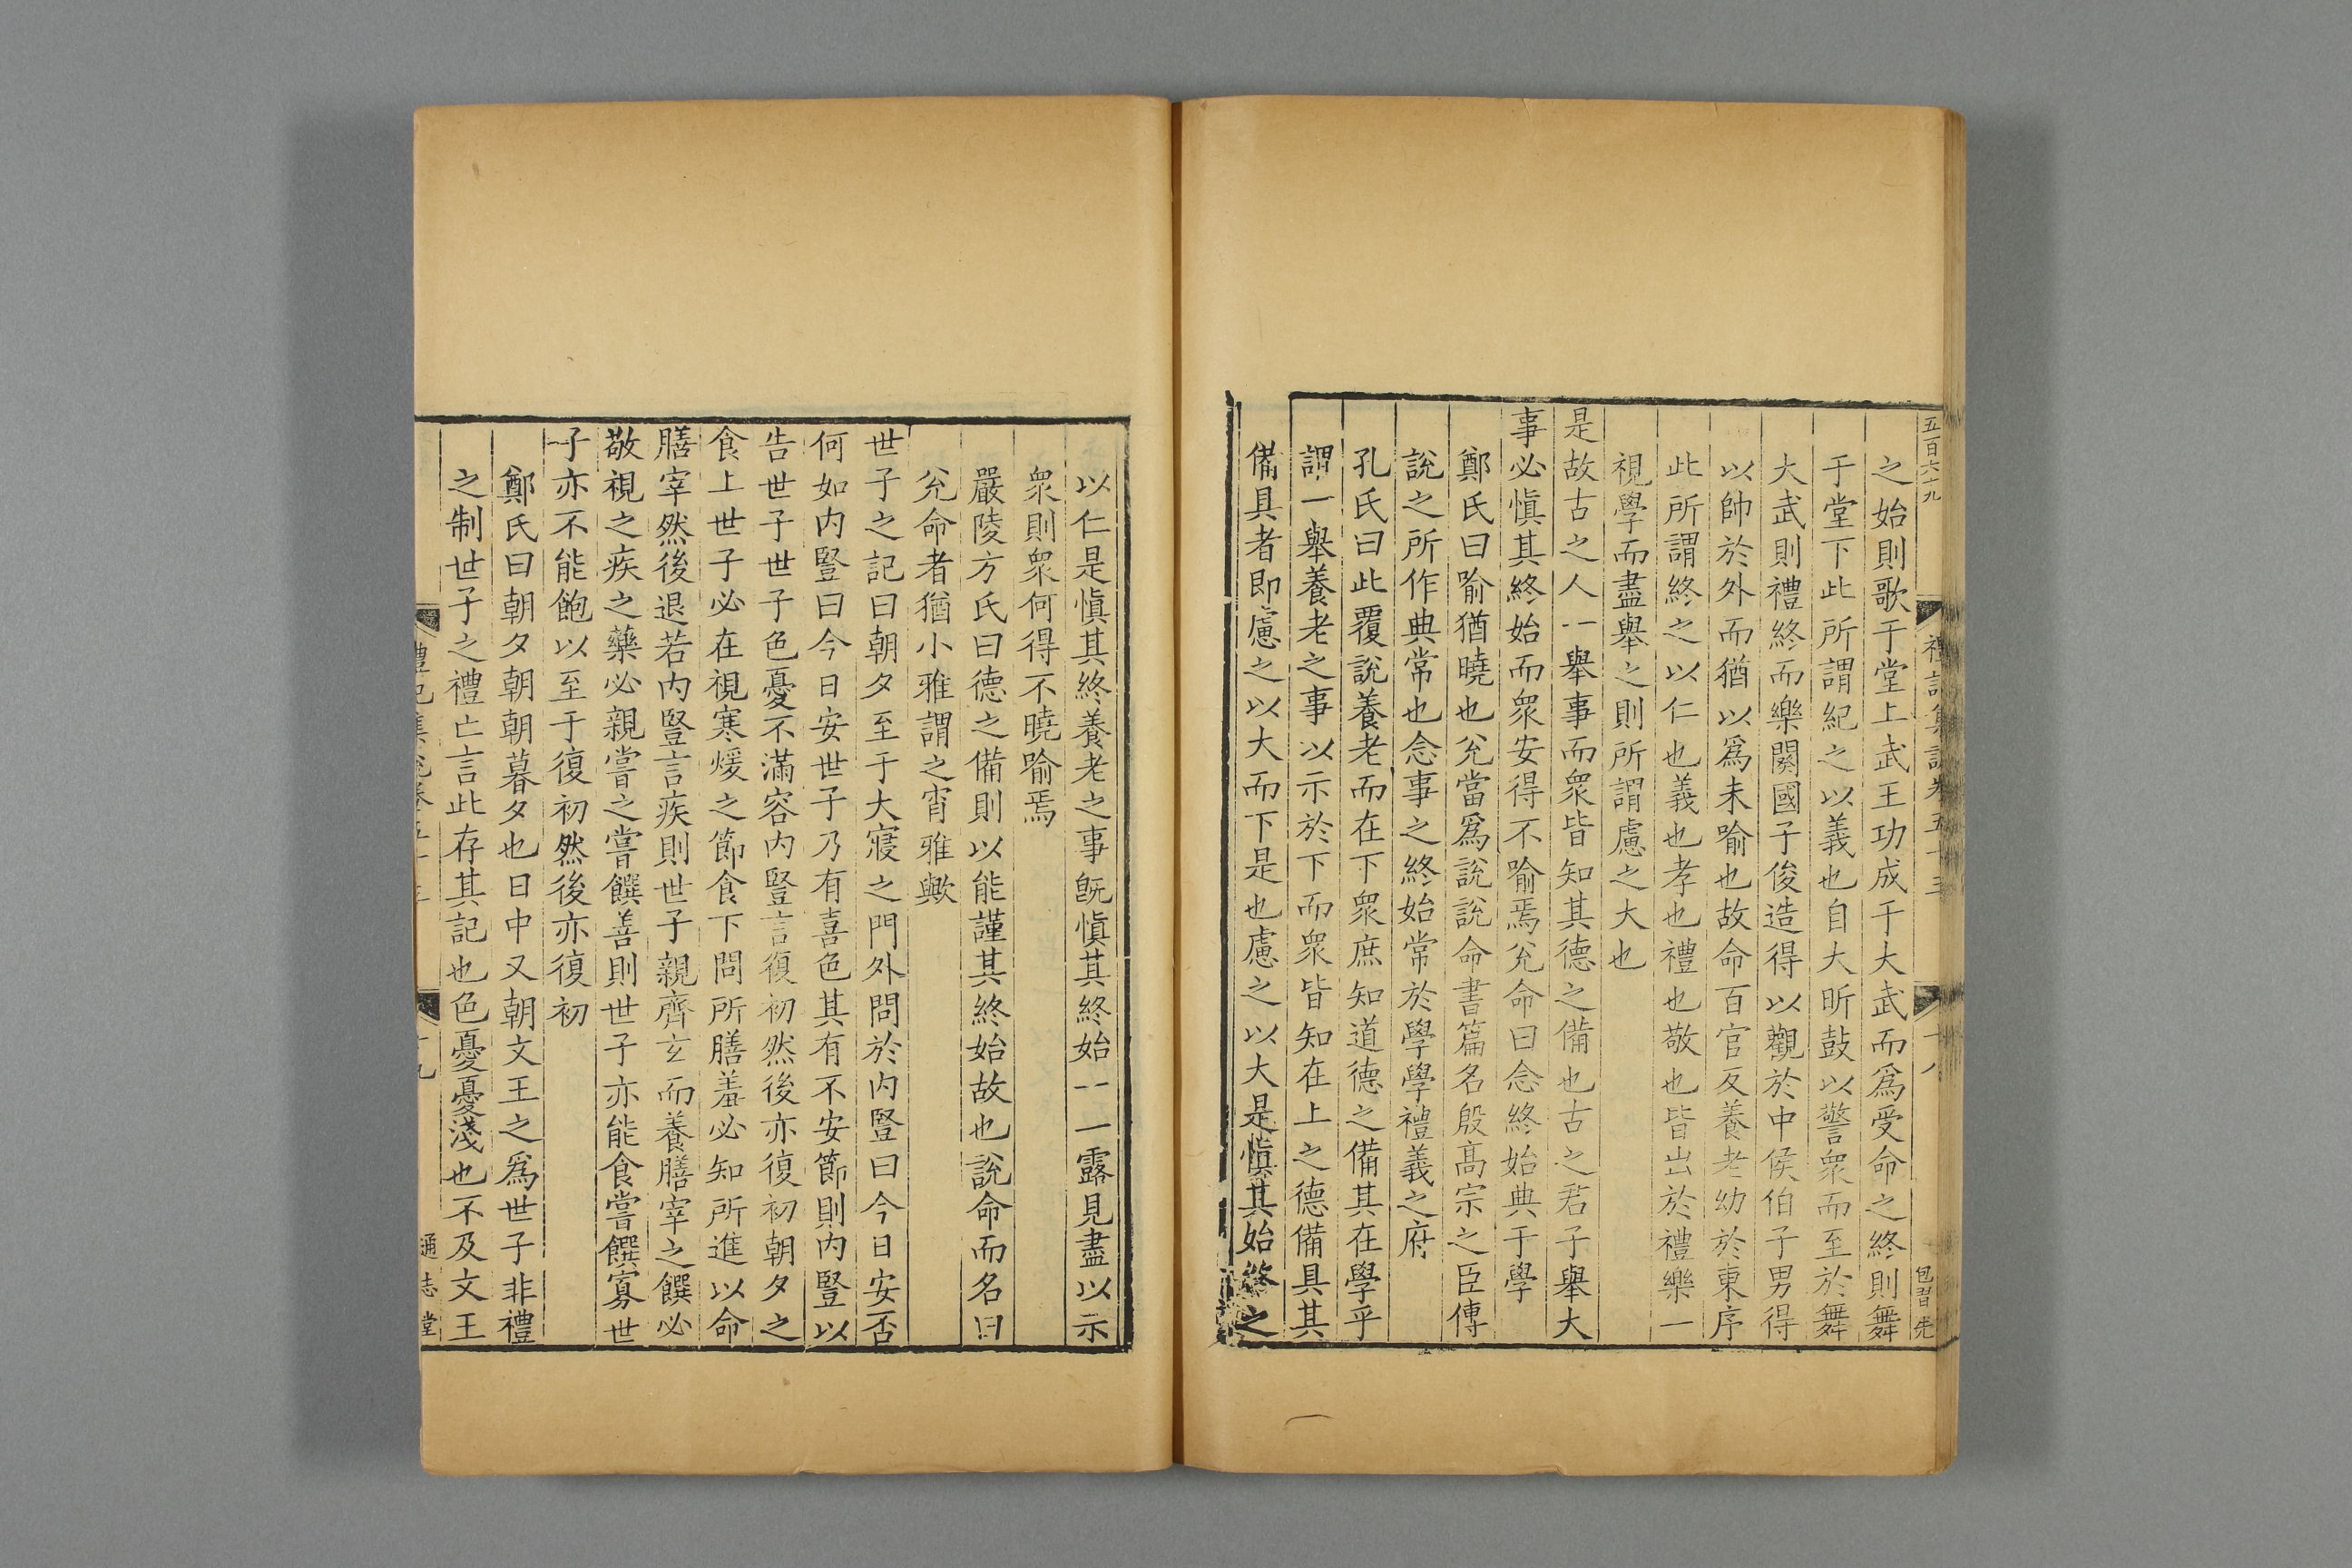 五百六十九
禮記集說卷五十三
十八
之始則歌于堂上武王功成于大武而爲受命之終則舞
于堂下此所謂紀之以義也自大昕鼓以警衆而至於舞
大武則禮終而樂闋國子俊造得以觀於中侯伯子男得
以帥於外而猶以爲未喻也故命百官反養老幼於東序
此所謂終之以仁也義也孝也禮也敬也皆出於禮樂一
視學而盡舉之則所謂慮之大也
是故古之人一舉事而衆皆知其德之備也古之君子舉大
事必愼其終始而衆安得不喻焉兊命曰念終始典于學
鄭氏曰喻猶曉也兊當爲說說命書篇名殷高宗之臣傅
說之所作典常也念事之終始常於學學禮義之府
孔氏曰此覆說養老而在下衆庶知道德之備其在學乎
謂一舉養老之事以示於下而衆皆知在上之德備具其
備具者即慮之以大而下是也慮之以大是愼其始終之
以仁是愼其終養老之事旣愼其終始一一露見盡以示
衆則衆何得不曉喻焉
嚴陵方氏曰德之備則以能謹其終始故也說命而名曰
兊命者猶小雅謂之宵雅歟
世子之記曰朝夕至于大寢之門外問於内豎曰今日安否
何如内豎曰今日安世子乃有喜色其有不安節則内豎以
告世子世子色憂不滿容内豎言復初然後亦復初朝夕之
食上世子必在視寒煖之節食下問所膳羞必知所進以命
膳宰然後退若内豎言疾則世子親齊玄而養膳宰之饌必
敬視之疾之藥必親嘗之嘗饌善則世子亦能食嘗饌寡世
子亦不能飽以至于復初然後亦復初
鄭氏曰朝夕朝朝暮夕也日中又朝文王之爲世子非禮
之制世子之禮亡言此存其記也色憂憂淺也不及文王
禮記集說卷五十三
十九
通志堂